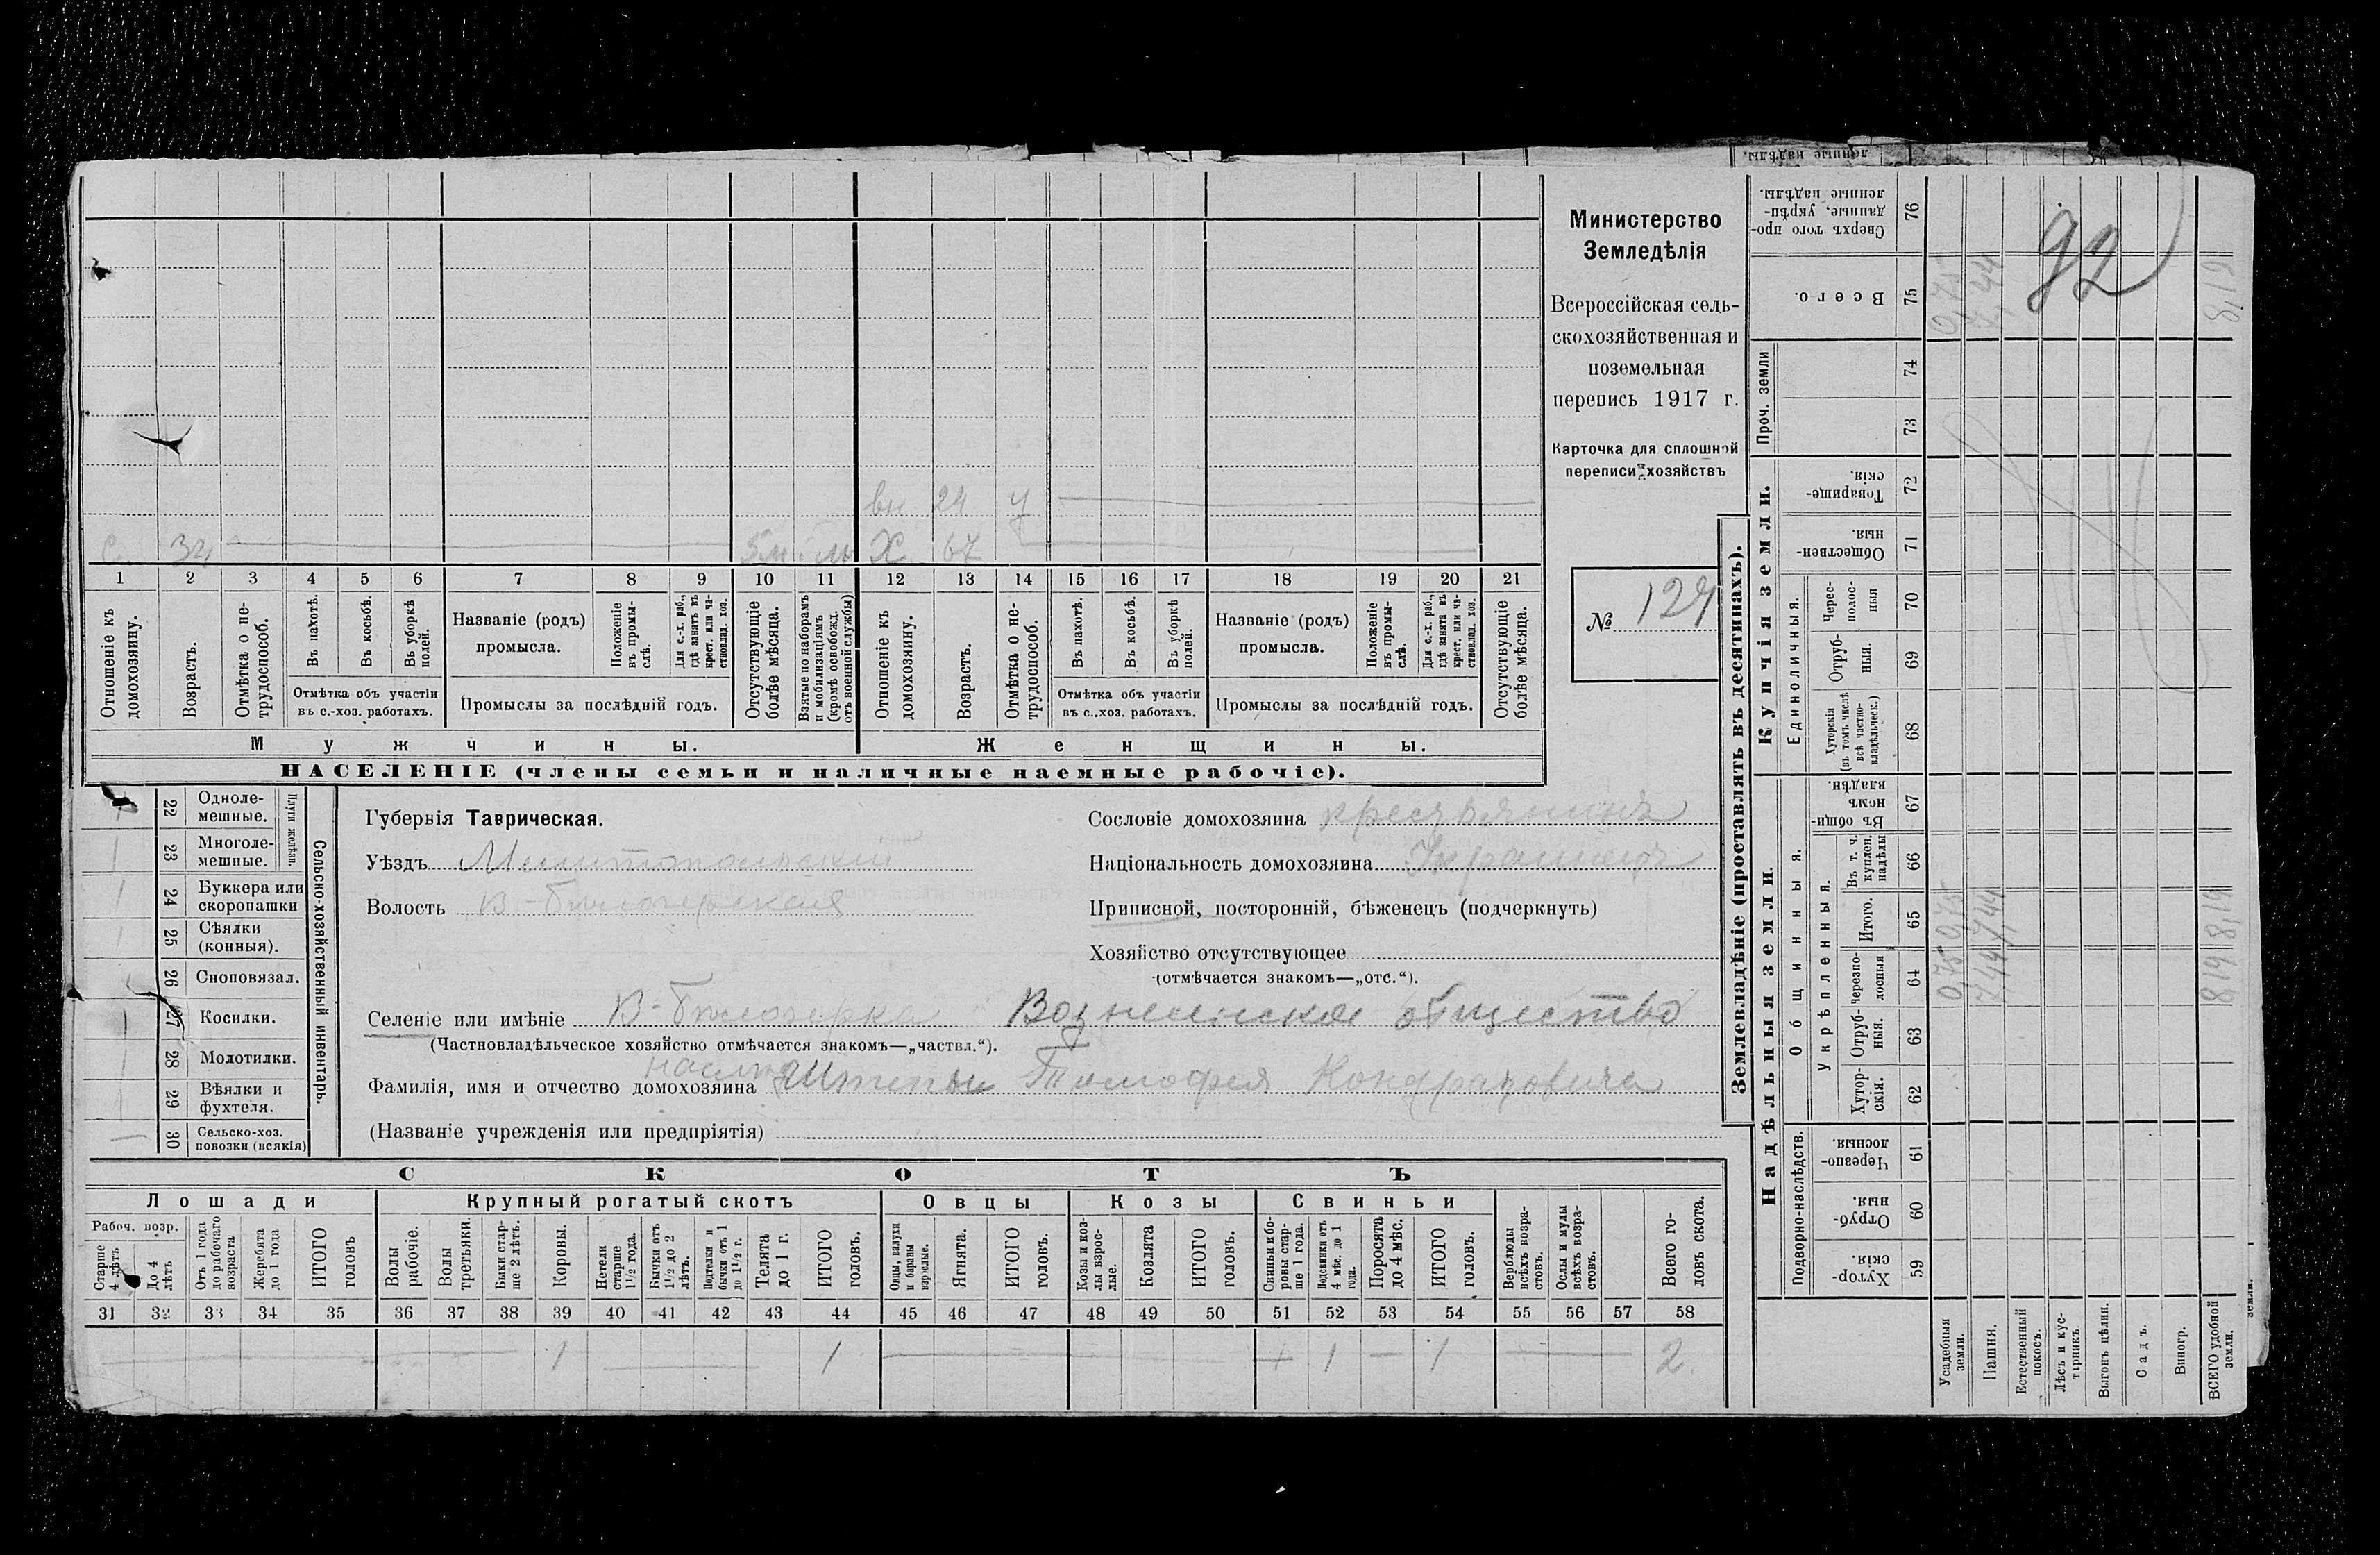 Министерство
Земледѣлія
Всероссійская сель-
скохозяйственная и
поземельная
перепись 1917 г.
Карточка для сплошной
переписи хозяйствъ
№ 127
92
вн 24 У
С. 34 Х 67
1 2 3 4 5 6 7 8 9 10 11 12 13 14 15 16 17 18 19 20 21
Отношеніе къ домохозяину.
Возрастъ.
Отмѣтка о не-трудоспособ.
Въ пахотѣ.
Въ косьбѣ.
Въ уборкѣ полей.
Отмѣтка объ участіи
въ с.-хоз. работахъ.
Названіе (родъ)
промысла.
Положеніе въ промы-слѣ.
Для с.-х. раб., гдѣ занятъ въ крест. или ча-стновлад. хоз.
Промыслы за послѣдній годъ.
Отсутствующіе болѣе мѣсяца.
Взятые по наборамъ и мобилизаціямъ (кромѣ освобожд. отъ военной службы)
Отношеніе къ домохозяину.
Возрастъ.
Отмѣтка о не-трудоспособ.
Въ пахотѣ.
Въ косьбѣ.
Въ уборкѣ полей.
Отмѣтка объ участіи
въ с.-хоз. работахъ.
Названіе (родъ)
промысла.
Положеніе въ промы-слѣ.
Для с.-х. раб., гдѣ занята въ крест. или ча-стновлад. хоз.
Промыслы за послѣдній годъ.
Отсутствующіе болѣе мѣсяца.
Мужчины.
Женщины.
НАСЕЛЕНІЕ (члены семьи и наличные наемные рабочіе).
22 Одноле-мешные.
23 Многоле-мешные.
Плуги желѣзн.
24 Буккера или скоропашки
25 Сѣялки (конныя).
26 Сноповязал.
27 Косилки.
28 Молотилки.
29 Вѣялки и фухтеля.
30 Сельско-хоз. повозки (всякія)
Сельско-хозяйственный инвентарь.
Губернія Таврическая.
Уѣздъ Мелитопольскій
Волость В-Бѣлозерская
Сословіе домохозяина крестьянинъ
Національность домохозяина Украинецъ
Приписной, посторонній, бѣженецъ (подчеркнуть)
Хозяйство отсутствующее
(отмѣчается знакомъ—„отс.“).
Селеніе или имѣніе В-Бѣлозерка Вознесенское общество
(Частновладѣльческое хозяйство отмѣчается знакомъ—„частвл.“).
Фамилія, имя и отчество домохозяина Тимофея Кондратовича
(Названіе учрежденія или предпріятія)
СКОТЪ
Лошади
Рабоч. возр.
Старше 4 лѣтъ
До 4 лѣтъ
Отъ 1 года до рабочаго возраста
Жеребята до 1 года
ИТОГО головъ
Крупный рогатый скотъ
Волы рабочіе.
Волы третьяки.
Быки стар-ше 2 лѣтъ.
Коровы.
Нетели старше 1½ года.
Бычки отъ 1½ до 2 лѣтъ.
Подтелки и бычки отъ 1 до 1½ г.
Телята до 1 г.
ИТОГО головъ.
Овцы
Овцы, валухи и бараны взрослые.
Ягнята.
ИТОГО головъ.
Козы
Козы и коз-лы взрос-лые.
Козлята
ИТОГО головъ.
Свиньи
Свиньи и бо-ровы стар-ше 1 года.
Подсвинки отъ 4 мѣс. до 1 года.
Поросята до 4 мѣс.
ИТОГО головъ.
Верблюды всѣхъ возра-стовъ.
Ослы и мулы всѣхъ возра-стовъ.
Всего го-ловъ скота.
31 32 33 34 35 36 37 38 39 40 41 42 43 44 45 46 47 48 49 50 51 52 53 54 55 56 57 58
1 1 1 1 2
Землевладѣніе (проставлять въ десятинахъ).
Купчія земли.
Надѣльныя земли.
Сверхъ того про-данные, укрѣп-ленные надѣлы. 76
Всего. 75
Проч. земли 74 73
Товарище-скія. 72
Обществен-ныя. 71
Единоличныя.
Черес-полос-ныя 70
Отруб-ныя. 69
Хуторскія (въ томъ числѣ всѣ частно-владѣльческ.) 68
Общинныя.
Въ общи-номъ владѣн. 67
Укрѣпленныя.
Въ т. ч. куплен. надѣлы 66
Итого. 65
Черезпо-лосныя 64
Отруб-ныя. 63
Хутор-скія. 62
Подворно-наслѣдств.
Черезпо-лосныя. 61
Отруб-ныя. 60
Хутор-скія. 59
Усадебныя земли. 0,75 0,75 0,75
Пашня. 7,44 7,44 7,44
Естественный покосъ.
Лѣсъ и кус-тарникъ.
Выгонъ цѣлин.
Садъ.
Виногр.
ВСЕГО удобной земли. 8,19 8,19 8,19